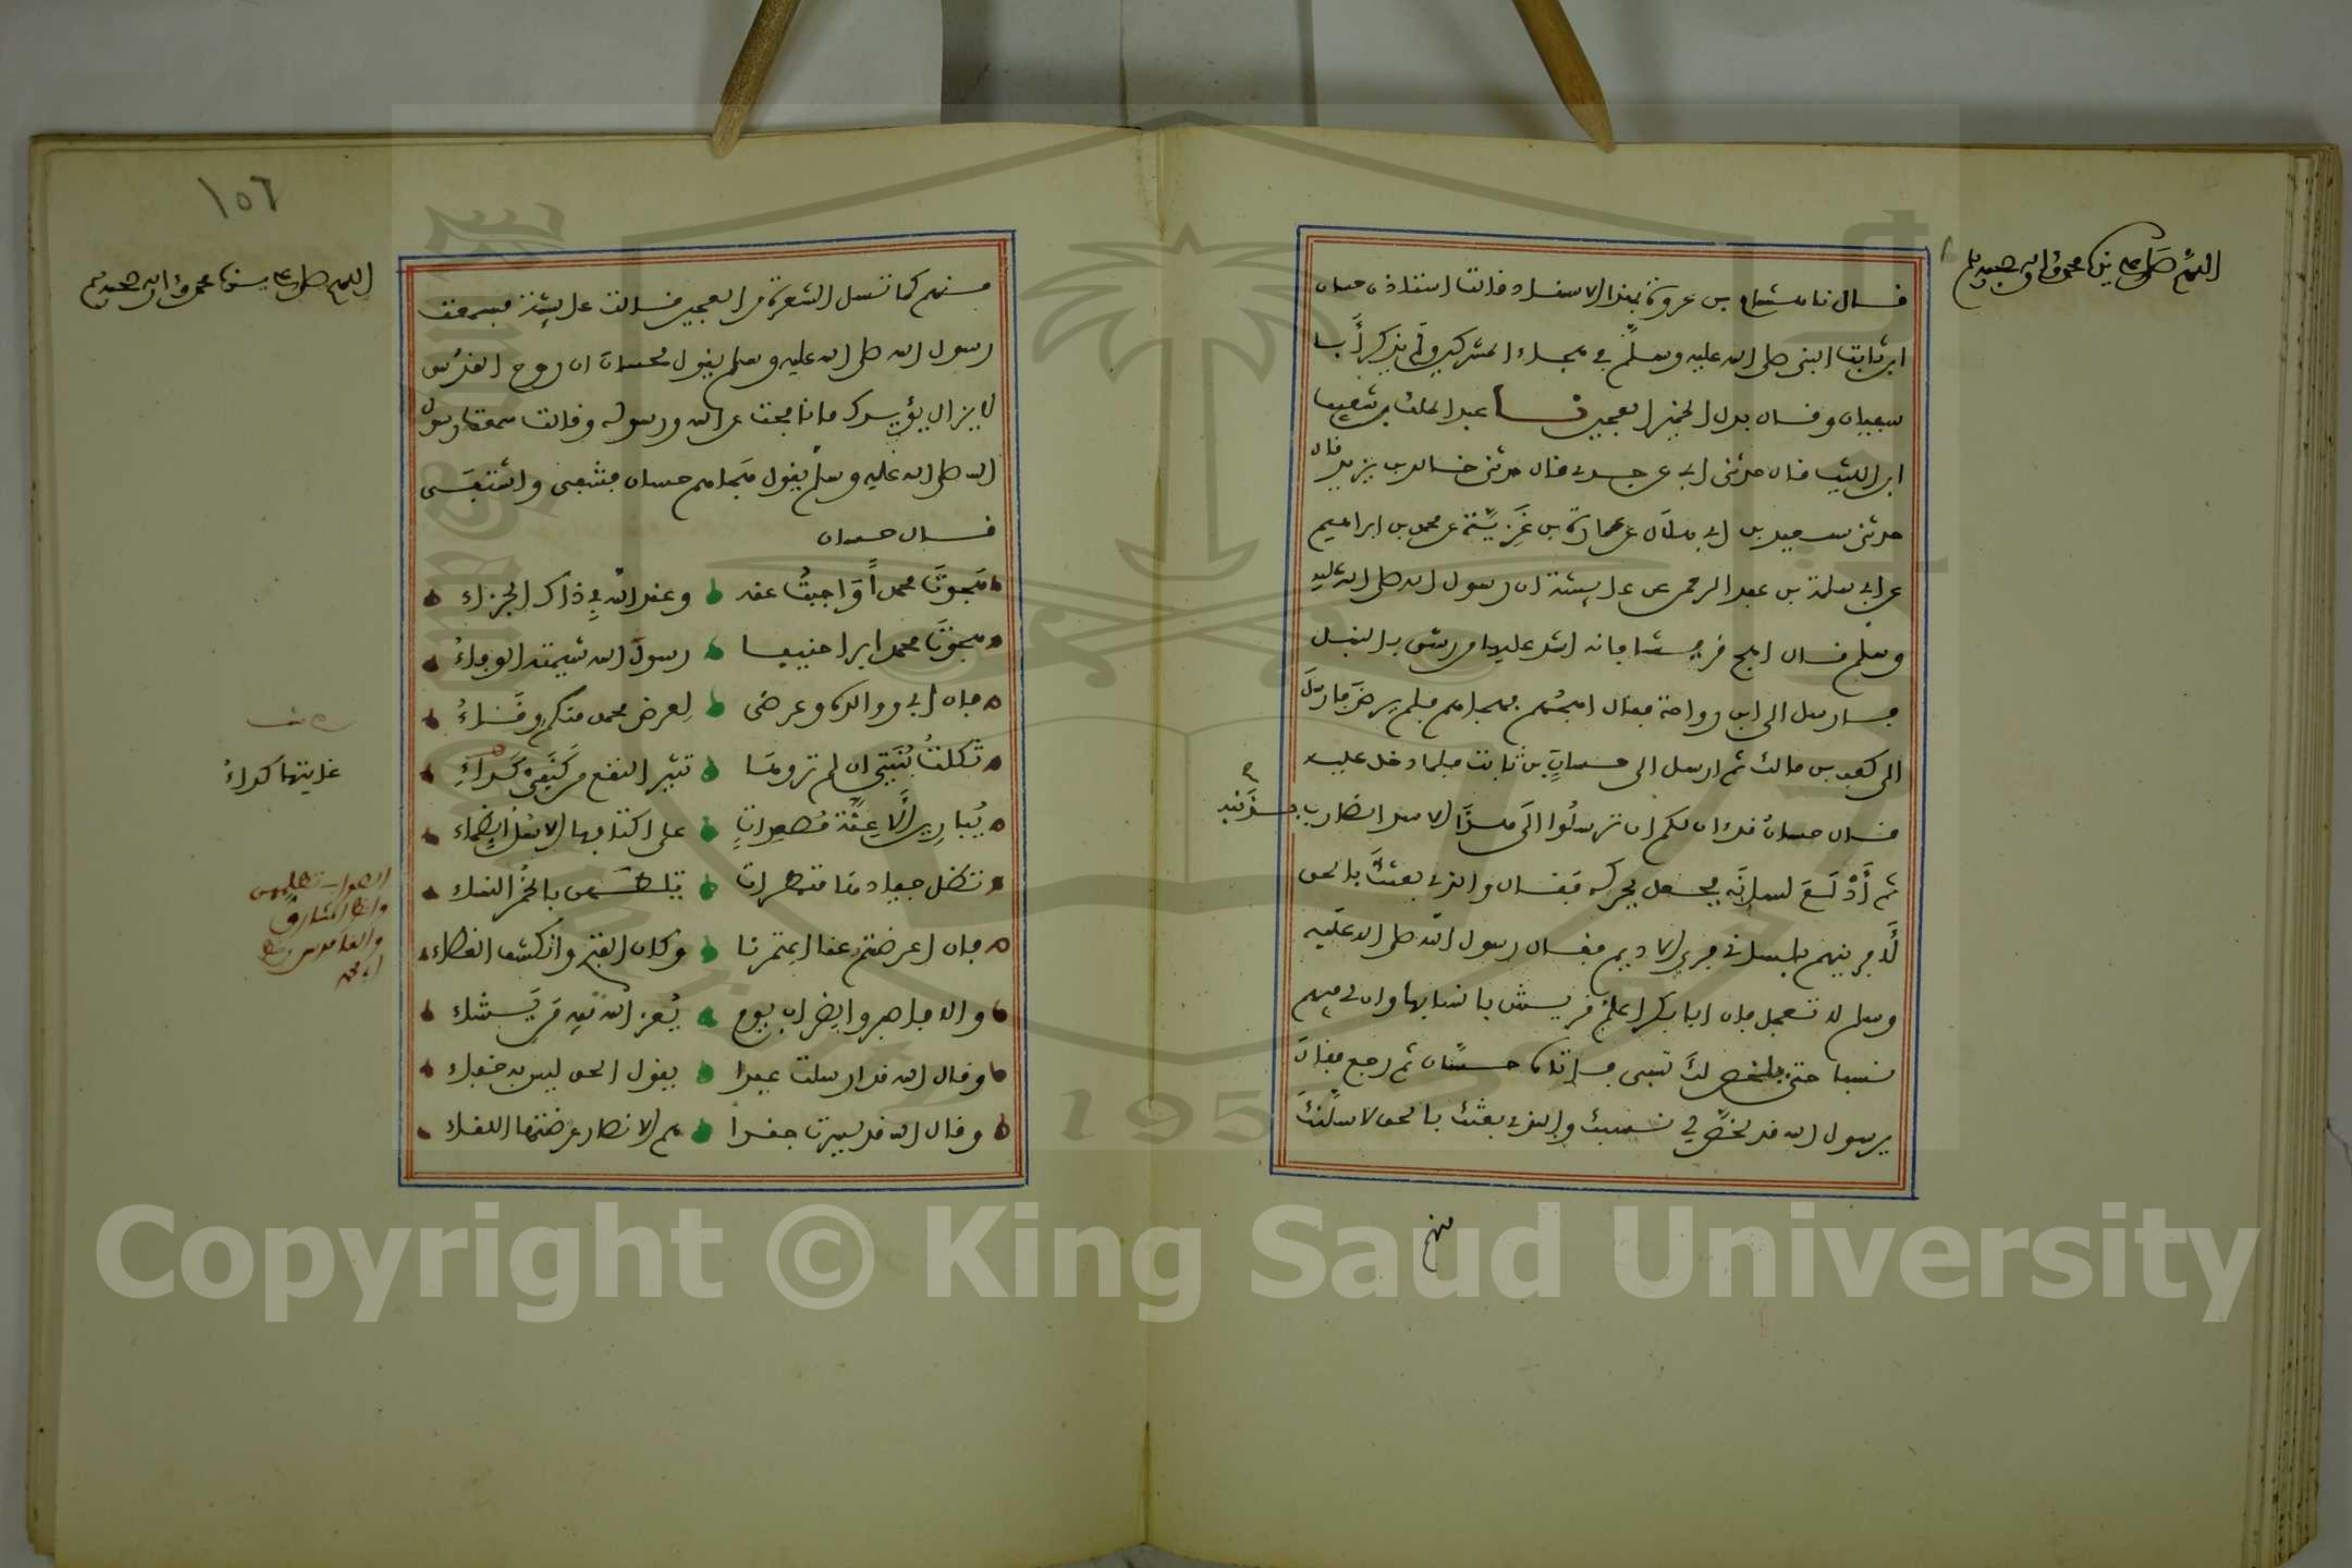 اللهم صل على سيدنا محمد وءاله وصحبه وسلم
قال نا هشام بن عروة بهذا الاسناد قالت استاذن حسان
ابن ثابت النبي صلى الله عليه وسلم في هجاء المشركين ولم يذكر أبا
سفيان وقال بدل الخمير العجين نا عبد الملك بن شعيب
ابن الليث قال حدثني ابي عن جدي قال حدثني خالد بن يزيد قال
حدثني سعيد بن ابي هلال عن عمارة بن غزية عن محمد بن ابراهيم
عن ابي سلمة بن عبد الرحمن عن عايشة ان رسول الله صلى الله عليه
وسلم قال اهج قريشا فانه اشد عليها من رشق بالنبل
فارسل الى ابن رواحة فقال اهجهم فهجاهم فلم يرض فارسل
الى كعب بن مالك ثم ارسل الى حسان بن ثابت فلما دخل عليه
قال حسان قد ان لكم ان ترسلوا الى هذا الاسد الضارب بذنبه
ثم أدلع لسانه فجعل يحركه فقال والذي بعثك بالحق
لأفرينهم بلساني فري الاديم فقال رسول الله صلى الله عليه
وسلم لا تعجل فان ابا بكر اعلم قريش بانسابها وان لي فيهم
نسبا حتى يلخص لك نسبي فاتاه حسان ثم رجع فقال
يرسول الله قد لخص لي نسبك والذي بعثك بالحق لاسلنك
منهم
١٥٦
اللهم صل على سيدنا محمد وءاله وصحبه وسلم
منهم كما تسل الشعرة من العجين قالت عايشة فسمعت
رسول الله صلى الله عليه وسلم يقول لحسان ان روح القدس
لا يزال يؤيدك ما نافحت عن الله ورسوله وقالت سمعت رسول
الله صلى الله عليه وسلم يقول هجاهم حسان فشفى واشتفى
قال حسان
هجوت محمدا فاجبت عنه وعند الله في ذاك الجزاء
هجوت محمدا برا حنيفا رسول الله شيمته الوفاء
فان ابي ووالده وعرضي لعرض محمد منكم وقاء
ثكلت بنيتي ان لم تروها تثير النقع من كنفي كداء
غايتها كداء
يبارين الاعنة مصعدات على اكتافها الاسل الظماء
تظل جيادنا متمطرات تلطمهن بالخمر النساء
فان اعرضتم عنا اعتمرنا وكان الفتح وانكشف الغطاء
والا فاصبروا لضراب يوم يعز الله فيه من يشاء
وقال الله قد ارسلت عبدا يقول الحق ليس به خفاء
وقال الله قد يسرت جندا هم الانصار عرضتها اللقاء
Copyright © King Saud University
195